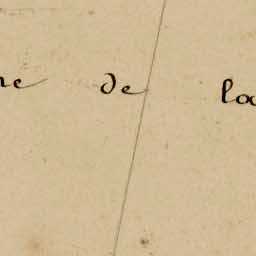 ne de la